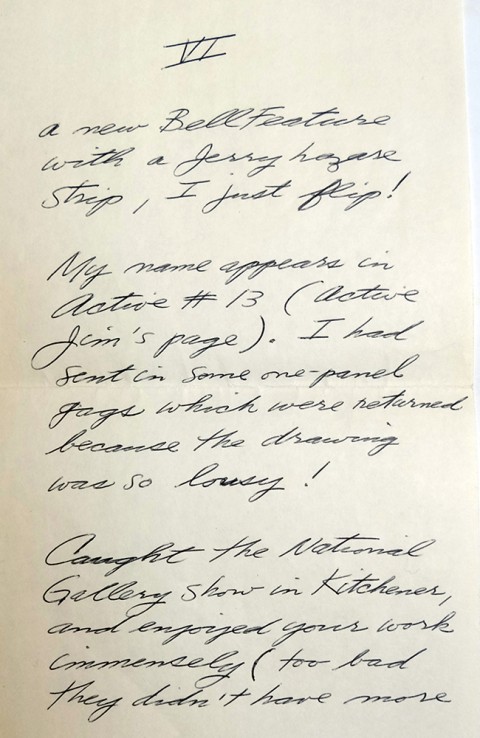 VI
a new Bell Feature
with a Jerry Lazare
strip, I just flip!
My name appears in
Active # 13 (Active
Jim's page). I had
sent in some one-panel
gags which were returned
because the drawing
was so lousy!
Caught the National
Gallery show in Kitchener,
and enjoyed your work
immensely (too bad
they didn't have more